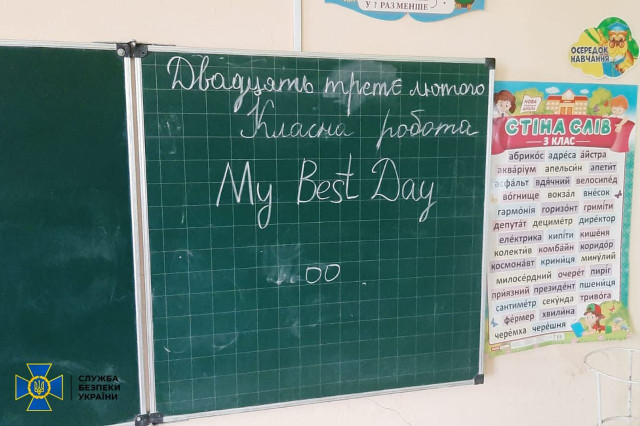 У ? РАЗ МЕНШЕ
Двадцять третє лютого
Класна робота
My Best Day
ОСЕРЕДОК
НАВЧАННЯ
НОВА
СТІНА СЛІВ
3 КЛАС
абрико́с адре́са а́йстра
аква́ріум апельси́н апети́т
асфа́льт вдя́чний велосипе́д
во́гнище вокза́л вне́сок
гармо́нія горизо́нт гримі́ти
депута́т дециме́тр дире́ктор
еле́ктрика кипі́ти кише́ня
колекти́в комба́йн коридо́р
космона́вт крини́ця мину́лий
милосе́рдний очере́т пирі́г
прия́зний президе́нт пшени́ця
сантиме́тр секу́нда триво́га
фе́рмер хвили́на
чере́мха чере́шня
СЛУЖБА
БЕЗПЕКИ
УКРАЇНИ